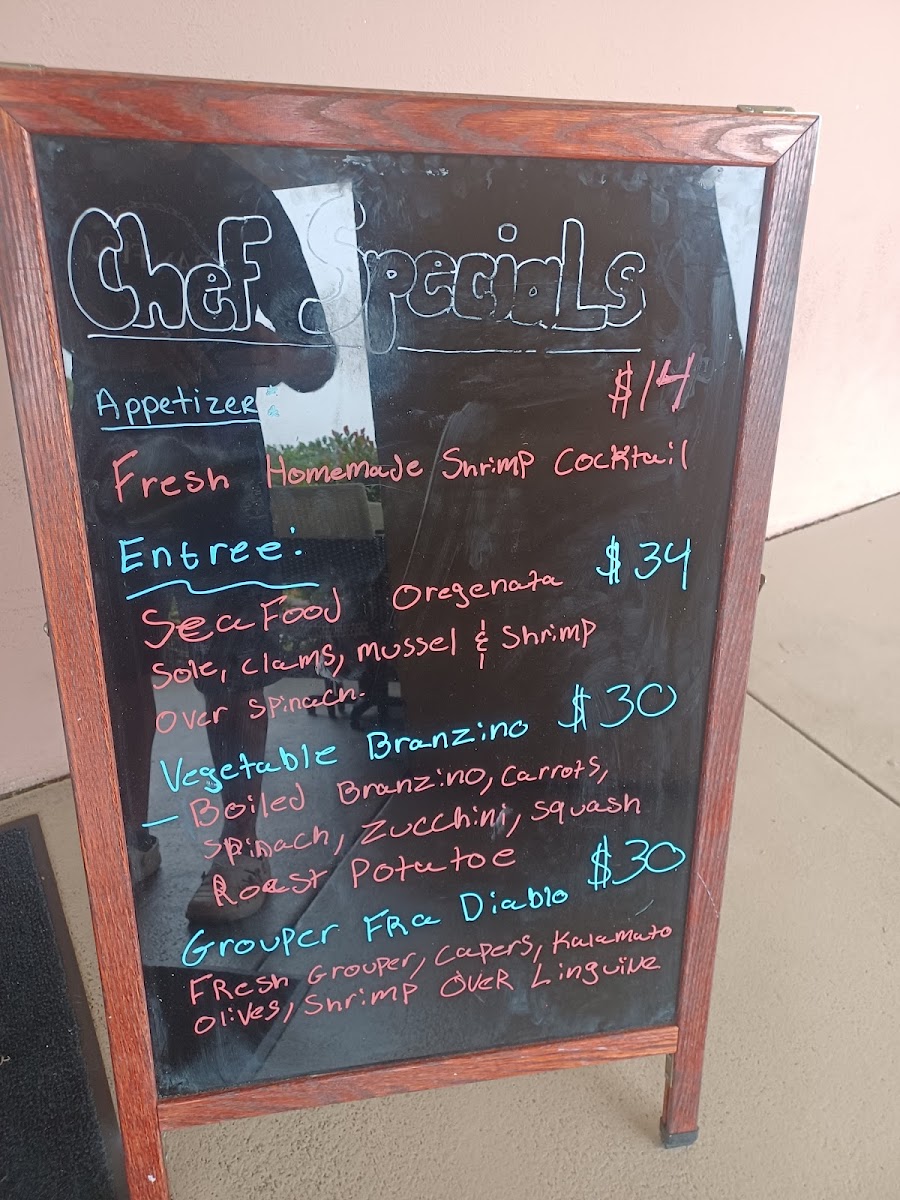 Chef Specials
Appetizer: $14
Fresh Homemade Shrimp Cocktail
Entree:
SeaFood Oregenata $34
Sole, Clams, Mussel & Shrimp
over spinach.
Vegetable Branzino $30
- Boiled Branzino, Carrots,
Spinach, Zucchini, Squash
Roast Potatoe
Grouper FRa Diablo $30
FResh Grouper, Capers, Kalamato
Olives, Shrimp Over Linguine